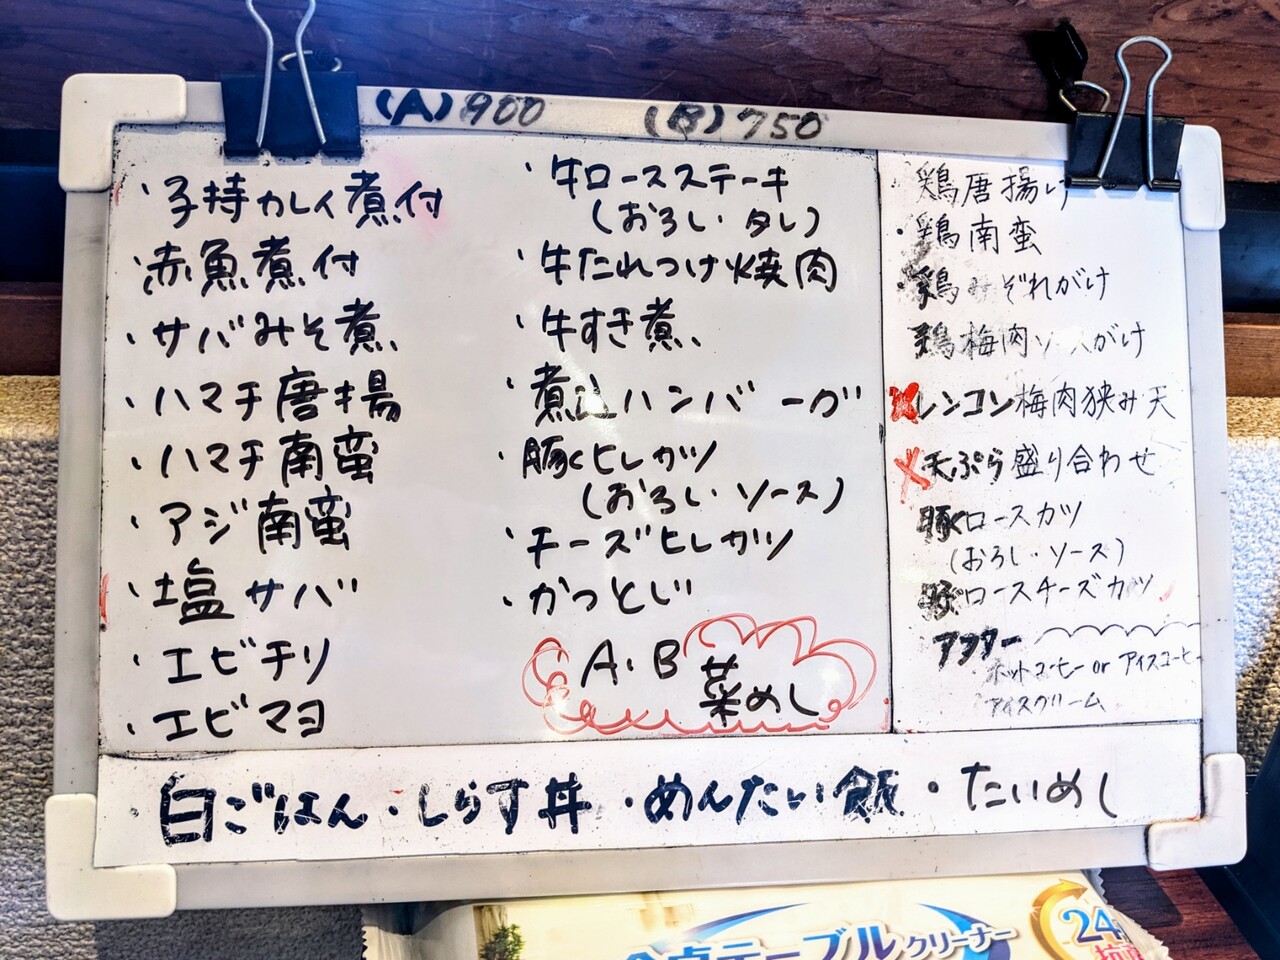 (A)900
(B)750
・子持カレイ煮付
・赤魚煮付
・サバみそ煮
・ハマチ唐揚
・ハマチ南蛮
・アジ南蛮
・塩サバ
・エビチリ
・エビマヨ
・牛ロースステーキ
(おろし・タレ)
・牛たれつけ焼肉
・牛すき煮
・煮込ハンバーグ
・豚ヒレカツ
(おろし・ソース)
・チーズヒレカツ
・かつとじ
A・B
菜めし
・鶏唐揚げ
・鶏南蛮
・鶏みぞれがけ
鶏梅肉ソースがけ
レンコン梅肉狭み天
天ぷら盛り合わせ
豚ロースカツ
(おろし・ソース)
豚ロースチーズカツ
アフター
ホットコーヒー or アイスコーヒー
アイスクリーム
・白ごはん・しらす丼・めんたい飯・たいめし
テーブルクリーナー
24